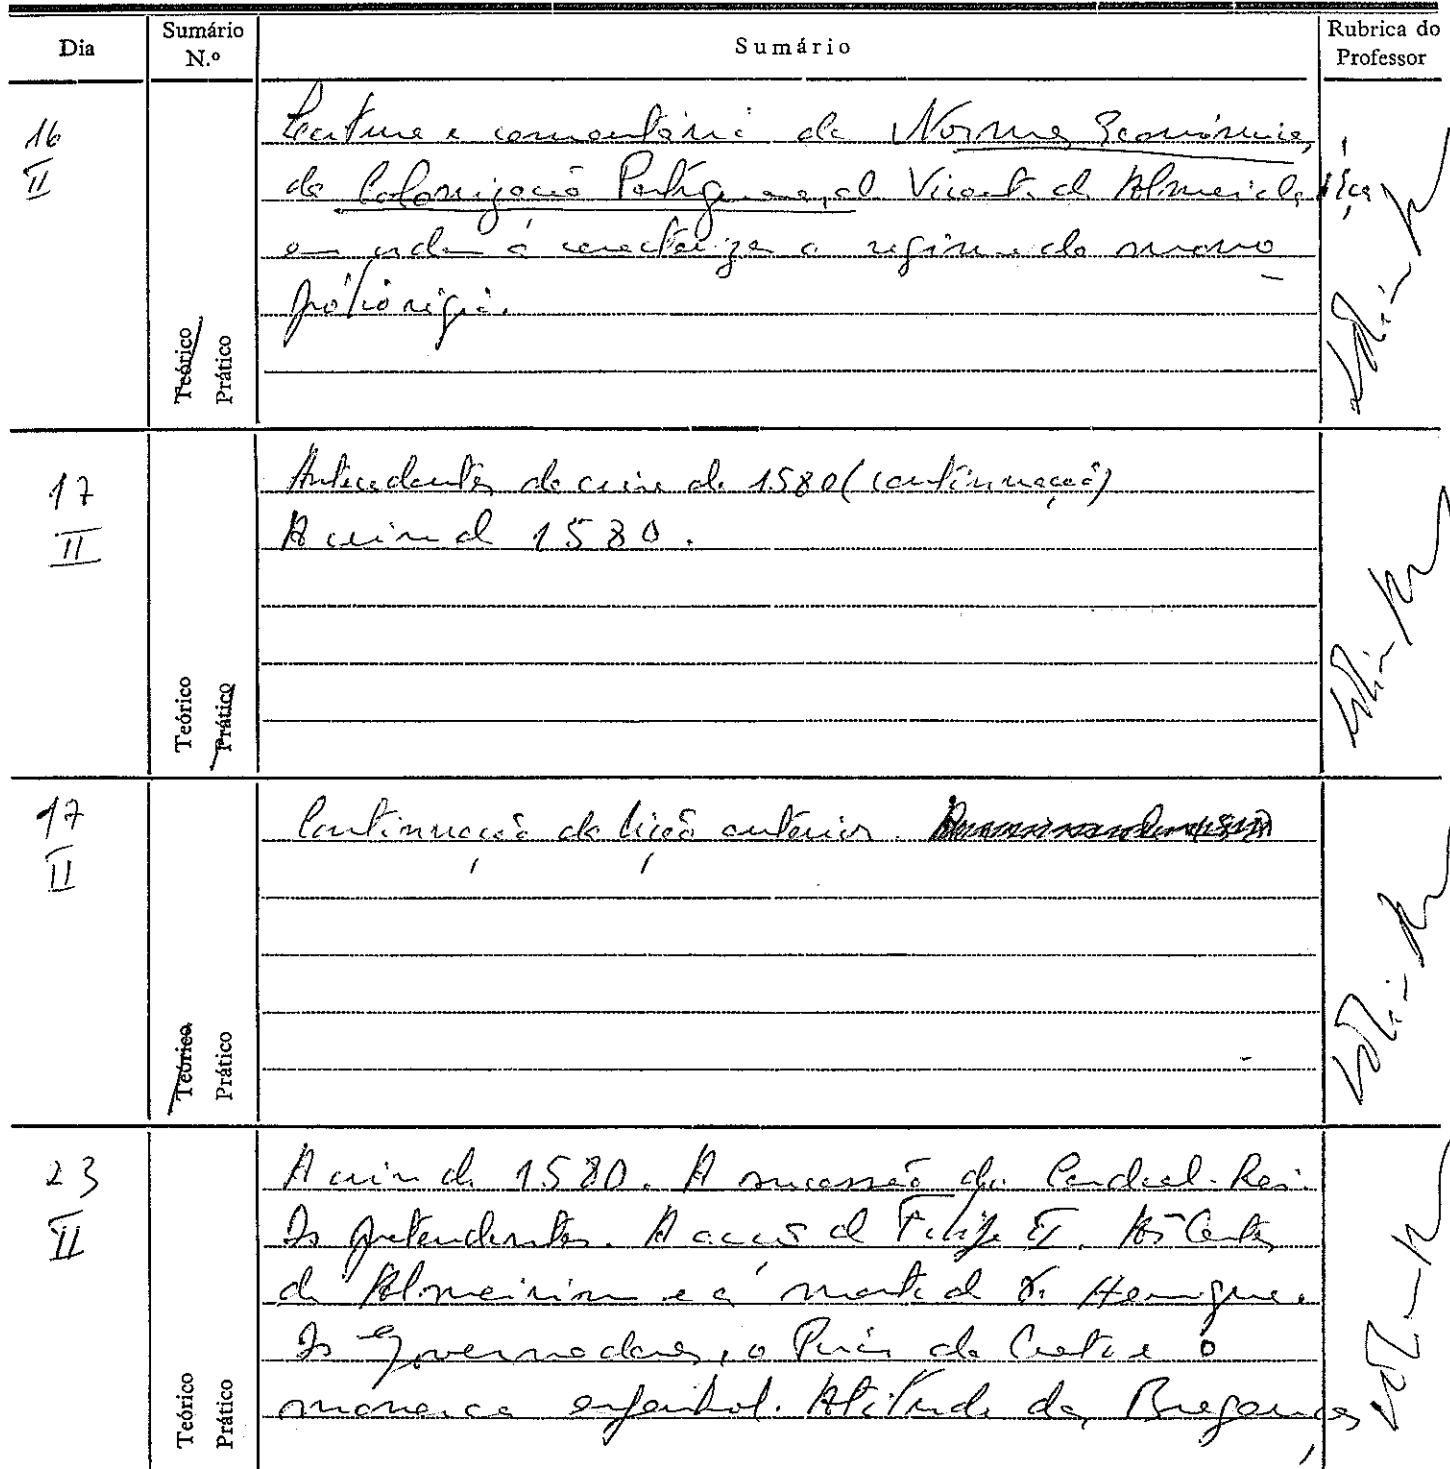 Dia
Sumário N.º
Sumário
Rubrica do Professor
16 II
Teórico
Prático
Leitura e comentário de Normas Económicas
da Colonização Portuguesa, de Vicente de Almeida Eça
em ordem a caracterizar o regime do mono
pólio régio.
17 II
Teórico
Prático
Antecedentes da crise de 1580 (continuação)
A crise de 1580.
17 II
Teórico
Prático
Continuação da lição anterior.
23 II
Teórico
Prático
A crise de 1580. A sucessão do Cardeal-Rei.
Os pretendentes. A acção de Filipe II. As Cortes
de Almeirim e a morte de D. Henrique.
Os Governadores, o Prior do Crato e o
monarca espanhol. Atitude dos Braganças